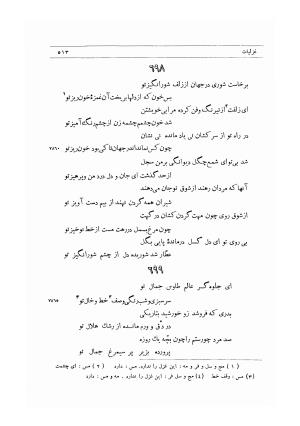 غزلیات
۵۱۳
۶۹۸
برخاست شوری در جهان از زلف شورانگیز تو
بس خون که از دلها بریخت آن غمزهٔ خون‌ریز تو
ای زلفت از نیرنگ و فن کرده مرا بی‌خویشتن
شد خون چشمم چشمه زن از چشم رنگ آمیز تو
در راه تو از سر کشان نی یاد مانده نی نشان
چون کس نماند اندر جهان تا کی بود خونریز تو
۷۸۱۰
شد بی‌توای شمع چگل دیوانگی بر من سجل
از حد گذشت ای جان و دل درد من و پرهیز تو
آنها که مردان رهند از شوق تو جان می‌دهند
شیران همه گردن نهند از بیم دست آویز تو
از شوق روی چون مهت گردن کشان درگهت
چون مرغ بسمل در رهت مست از خط نوخیز تو
بی روی تو ای دل گسل درمانده پایی بگل
عطار شد شوریده دل از چشم شورانگیز تو
۶۹۹
ای جلوه‌گر عالم طاوس جمال تو
سرسبزی و شبرنگی وصف خط و خال تو
۷۸۱۵
بدری که فروشد زو خورشید بتاریکی
در دق و ورم مانده از رشک هلال تو
صد مرد چو رستم را چون بچهٔ یک روزه
پرورده بزیر پر سیمرغ جمال تو
(۱) مج و سل و فر و مه : این غزل را ندارد. مس ، دارد (۲) مس : ای چشمت
(۳) مس : وقف خط (۴) مج و سل و فر : این غزل را ندارد . مه و مس : دارد